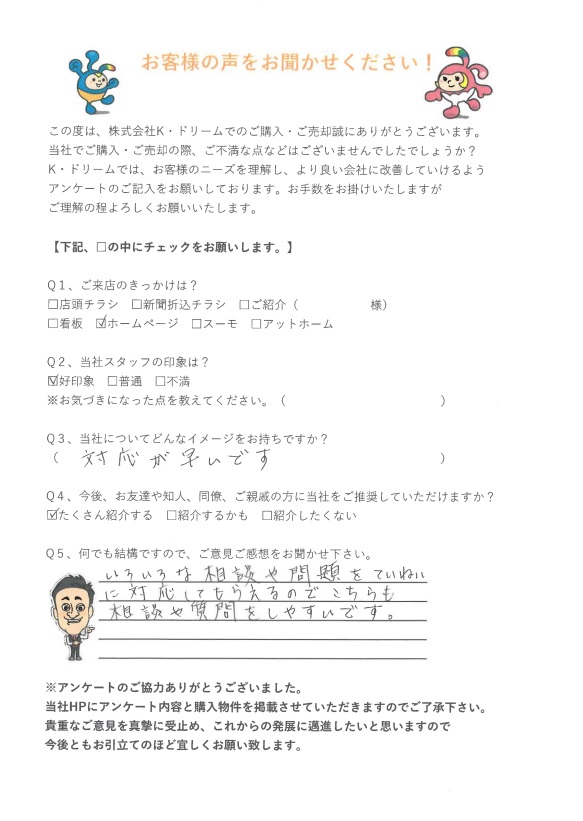 お客様の声をお聞かせください！
この度は、株式会社K・ドリームでのご購入・ご売却誠にありがとうございます。
当社でご購入・ご売却の際、ご不満な点などはございませんでしたでしょうか？
K・ドリームでは、お客様のニーズを理解し、より良い会社に改善していけるよう
アンケートのご記入をお願いしております。お手数をお掛けいたしますが
ご理解の程よろしくお願いいたします。
【下記、□の中にチェックをお願いします。】
Q１、ご来店のきっかけは？
□店頭チラシ　□新聞折込チラシ　□ご紹介（　　　　　　様）
□看板　☑ホームページ　□スーモ　□アットホーム
Q２、当社スタッフの印象は？
☑好印象　□普通　□不満
※お気づきになった点を教えてください。（　　　　　　　　　　　　　）
Q３、当社についてどんなイメージをお持ちですか？
（　対応が早いです　）
Q４、今後、お友達や知人、同僚、ご親戚の方に当社をご推奨していただけますか？
☑たくさん紹介する　□紹介するかも　□紹介したくない
Q５、何でも結構ですので、ご意見ご感想をお聞かせ下さい。
いろいろな相談や問題をていねい
に対応してもらえるのでこちらも
相談や質問をしやすいです。
※アンケートのご協力ありがとうございました。
当社HPにアンケート内容と購入物件を掲載させていただきますのでご了承下さい。
貴重なご意見を真摯に受止め、これからの発展に邁進したいと思いますので
今後ともお引立てのほど宜しくお願い致します。